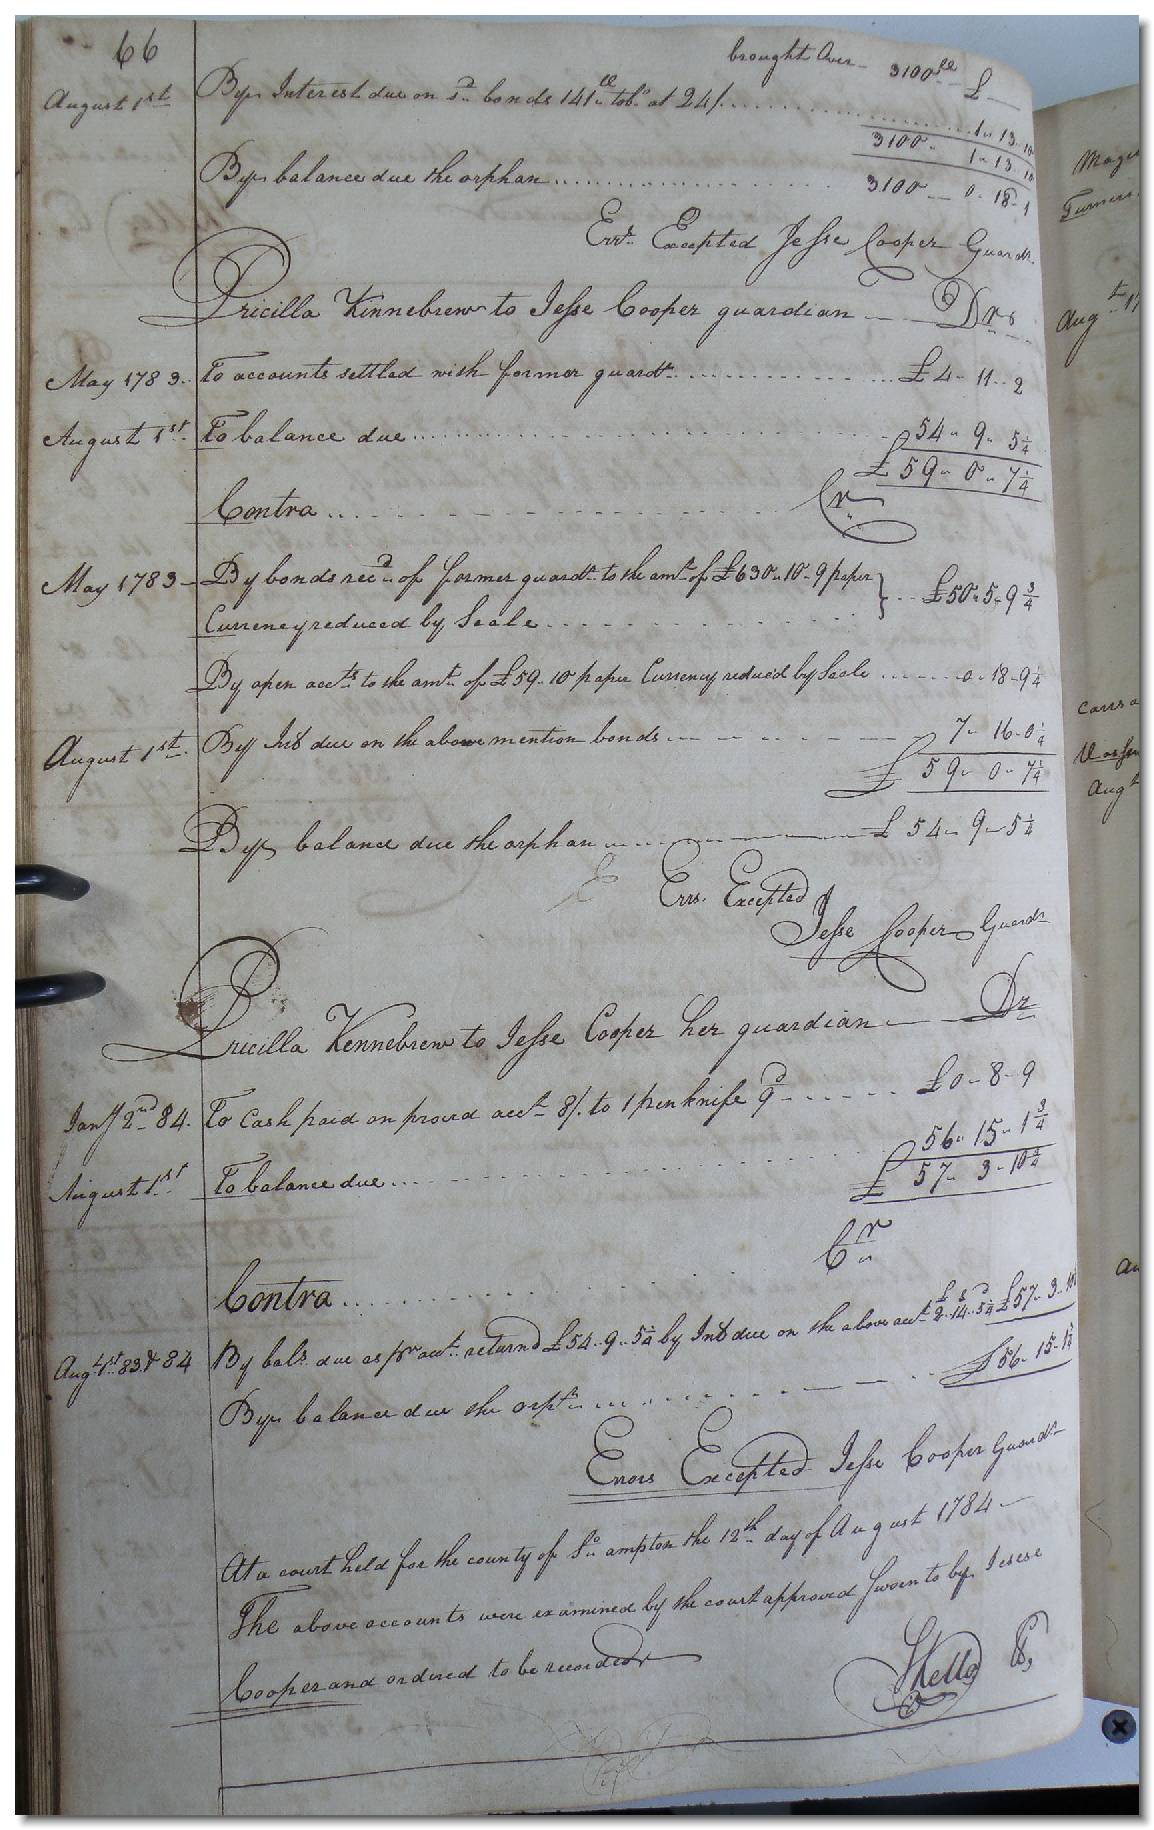 66
brought Over 3100 lb £
August 1st By Interest due on sd bonds 141 lb tobo at 24/ 1 - 13 - 10
3100 - 1 - 13 - 10
By balance due the orphan 3100 - 0 - 18 - 1
Errs Excepted Jesse Cooper Guardn
Pricilla Kinnebrew to Jesse Cooper guardian Drs
May 1783 To accounts settled with former guardn £ 4 - 11 - 2
August 1st To balance due 54 - 9 - 5 1/4
£ 59 - 0 - 7 1/4
Contra Cr
May 1783 By bonds recd of former guardn to the amt of £630 - 10 - 9 paper
Currency reduced by Scale } £50 - 5 - 9 3/4
By open accts to the amt of £59 - 10 paper Currency reduced by Scale 0 - 18 - 9 1/4
August 1st By Ints due on the above mention bonds 7 - 16 - 0 1/4
£ 59 - 0 - 7 1/4
By balance due the orphan £ 54 - 9 - 5 1/4
Errs. Excepted
Jesse Cooper Guardn
Pricilla Kennebrew to Jesse Cooper her guardian Dr
Jany 2nd 84. To Cash paid on proved acct 8/. to 1 penknife 9d £0 - 8 - 9
August 1st To balance due 56 - 15 - 1 3/4
£ 57 - 3 - 10 3/4
Cr
Contra
Augt 1st 83 & 84 By bals due as pr acct returnd £54 - 9 - 5 1/4 by Ints due on the above acct £2 s14 d5 1/4 £57 - 3 - 10
By balance due the orpn £56 - 15 - 1 3/4
Errors Excepted Jesse Cooper Guardn
At a court held for the county of So ampton the 12th day of August 1784
The above accounts were examined by the court approved Sworn to by Jesse
Cooper and ordered to be recorded
Magu
Turner
Augt 17
Augt